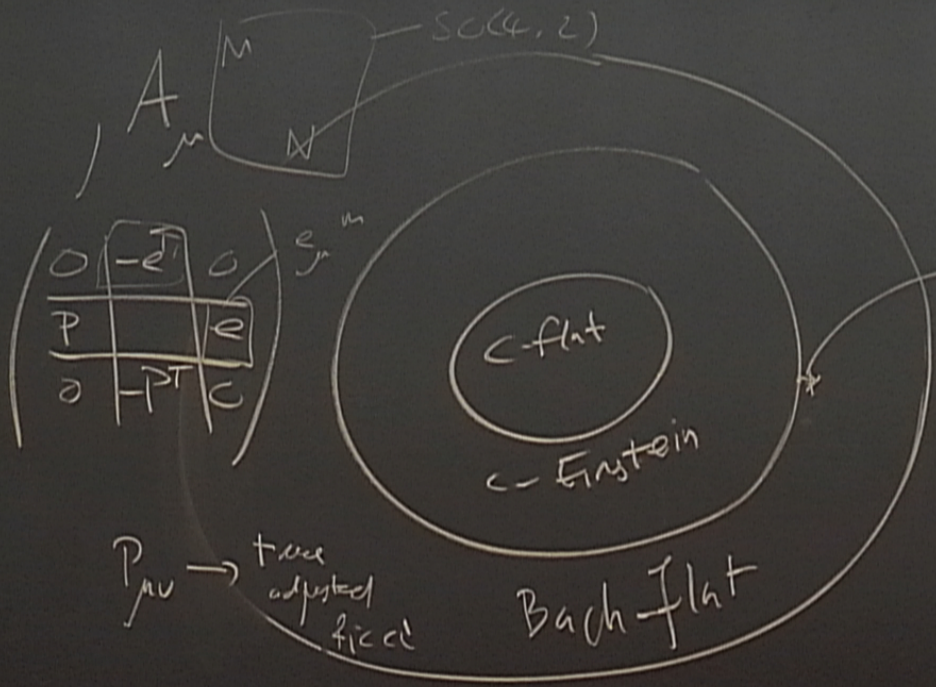 SO(4,2)
, A_μ M N
0 | -e^T | 0
P | | e
0 | -P^T | 0
e_μ^m
C-flat
C-Einstein
Bach-flat
P_μν → trace
adjusted
Ricci